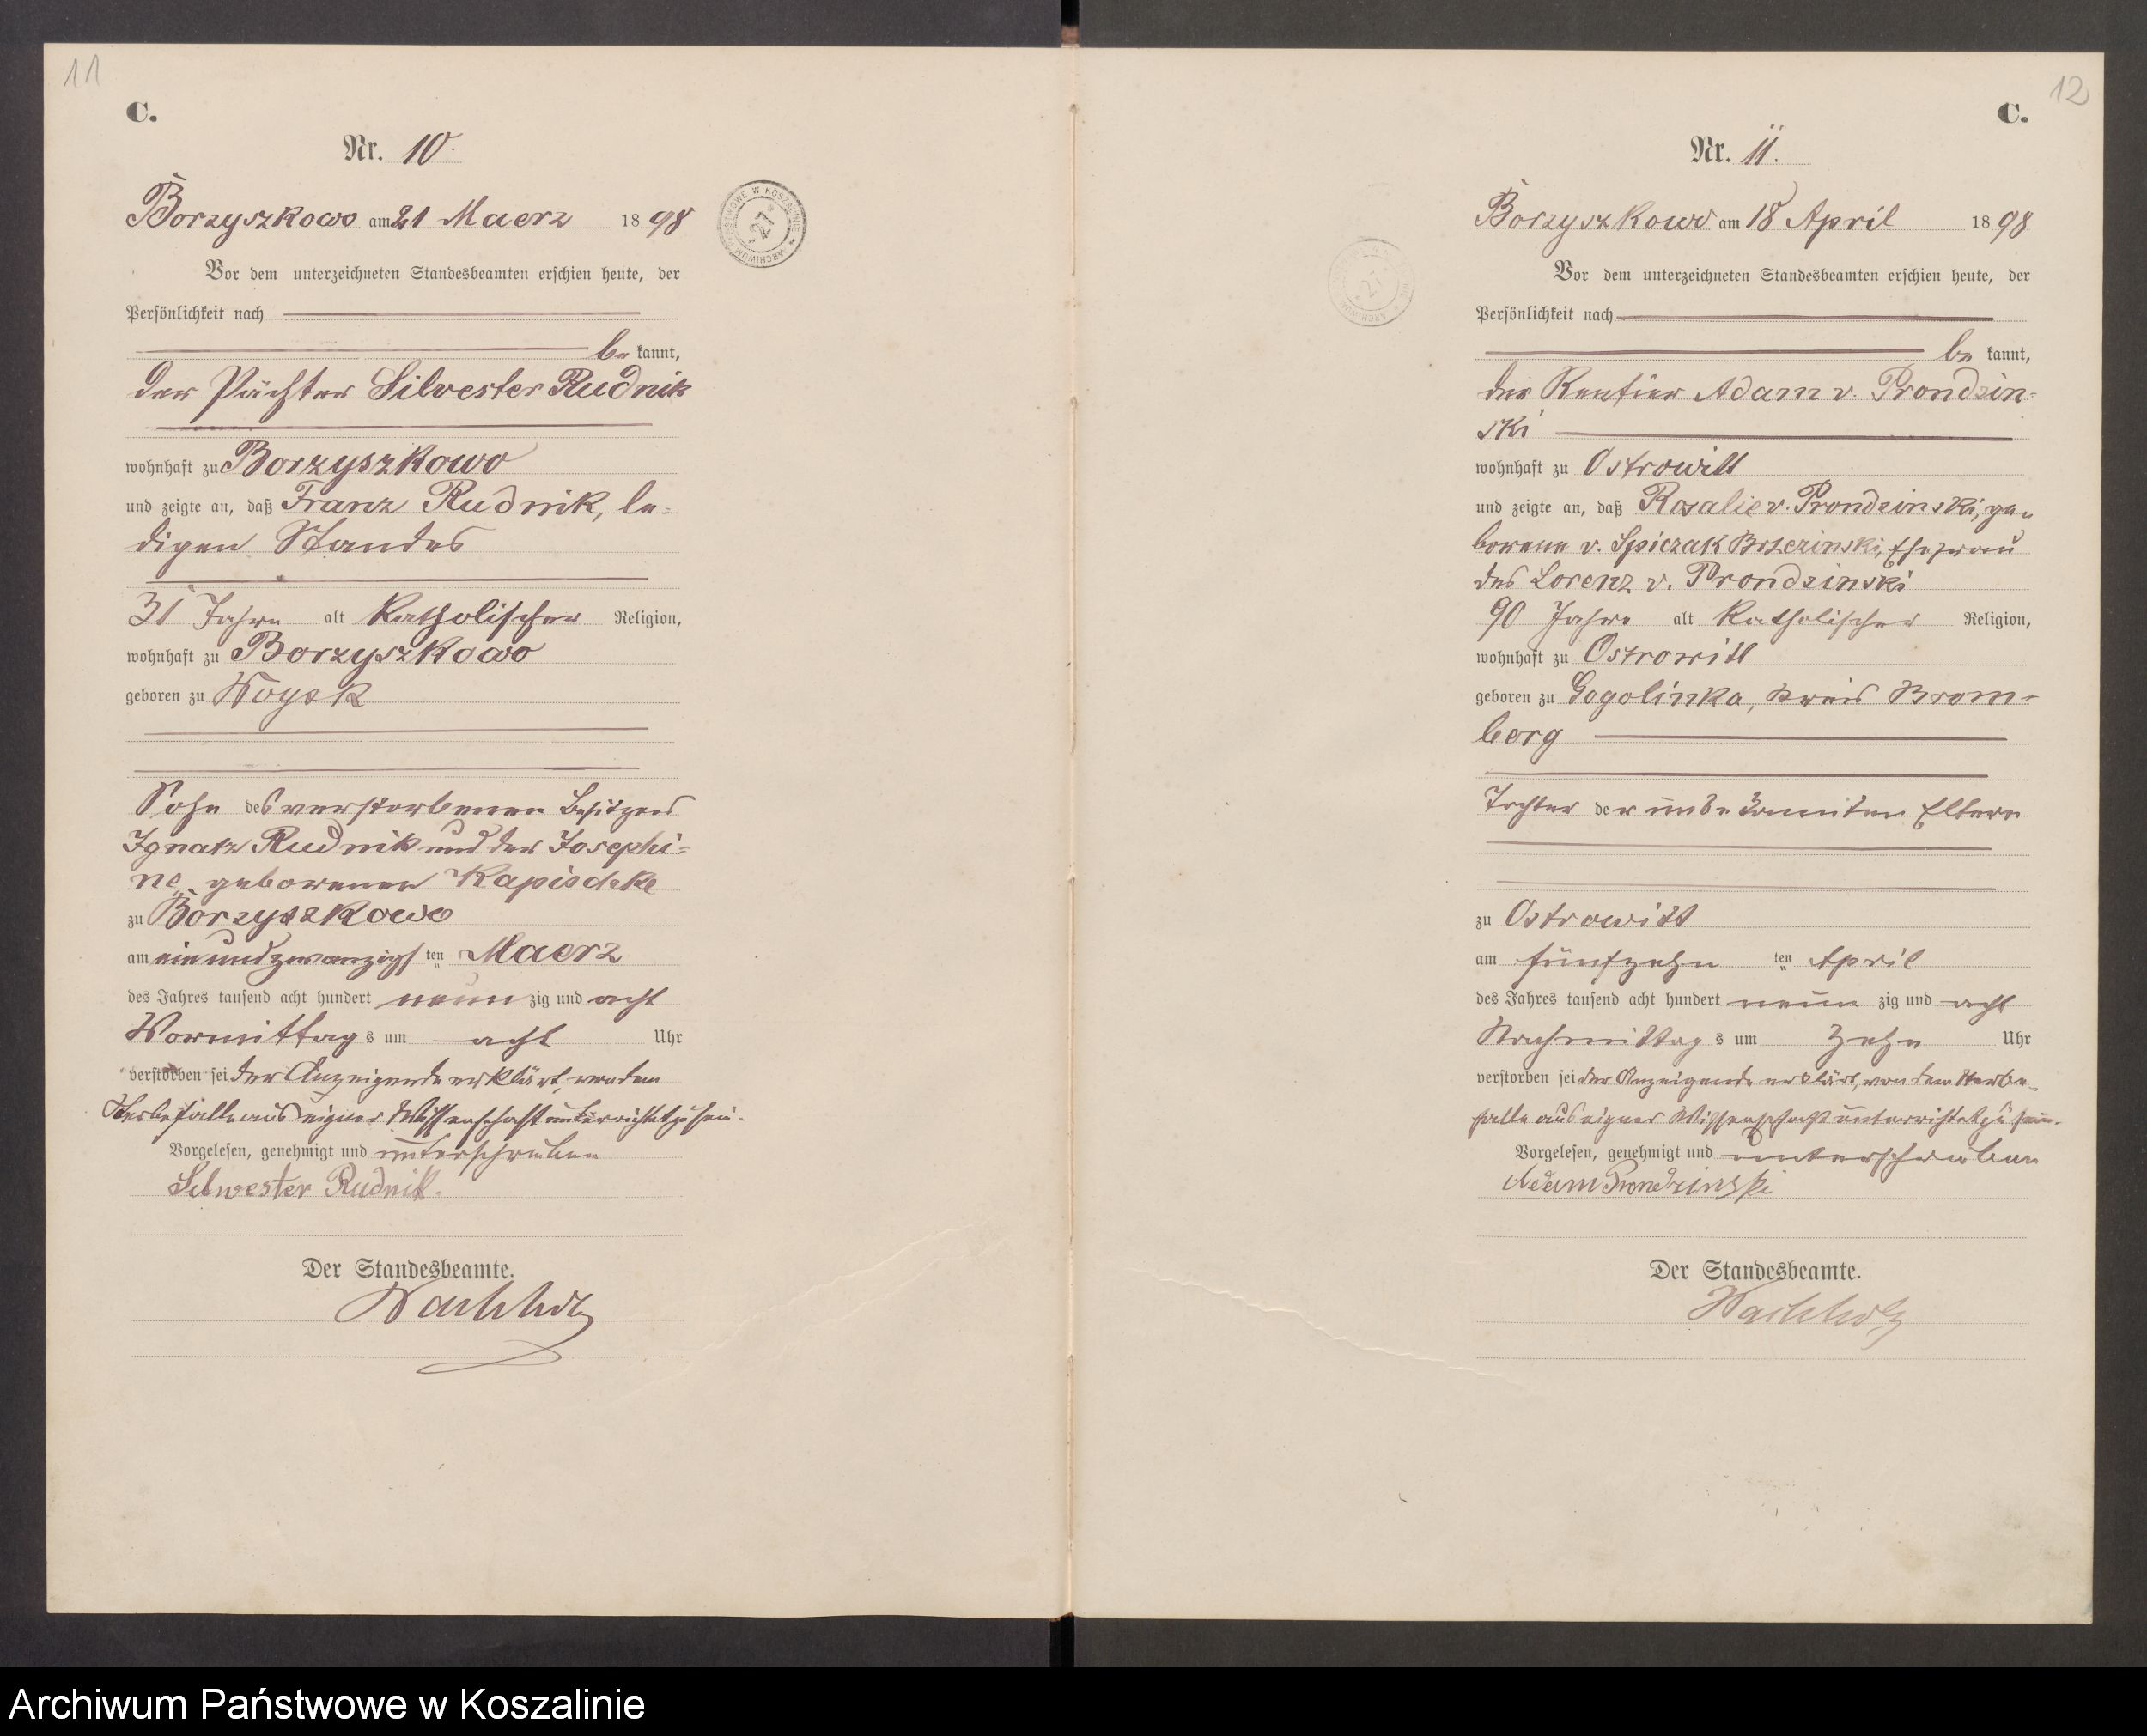 11
C.
Nr. 10.
Borzyszkowo am 21 Maerz 1898
ARCHIWUM PAŃSTWOWE W KOSZALINIE * 27 *
Vor dem unterzeichneten Standesbeamten erschien heute, der
Persönlichkeit nach
be kannt,
der Pächter Silvester Rudnik
wohnhaft zu Borzyszkowo
und zeigte an, daß Franz Rudnik, le-
digen Standes
31 Jahre alt Katholischer Religion,
wohnhaft zu Borzyszkowo
geboren zu Woysk
Sohn des verstorbenen Besitzers
Ignatz Rudnik und der Josephi-
ne, geborenen
zu Borzyszkowo
am ein und zwanzigs ten Maerz
des Jahres tausend acht hundert neun zig und acht
Vormittag s um acht Uhr
verstorben sei der Anzeigende erklärt, von dem
Sterbefalle aus eigner Wissenschaft unterrichtet zu sein.
Vorgelesen, genehmigt und unterschrieben
Silwester Rudnik.
Der Standesbeamte.
Wachholz
12
C.
Nr. 11.
Borzyszkowo am 18 April 1898
Vor dem unterzeichneten Standesbeamten erschien heute, der
Persönlichkeit nach
be kannt,
der Rentier Adam v. Prondzin-
ski
wohnhaft zu Ostrowitt
und zeigte an, daß Rosalie v. Prondzinski, ge-
borene v. Spiczak Brzezinski, Ehefrau
des Lorenz v. Prondzinski
90 Jahre alt Katholischer Religion,
wohnhaft zu Ostrowitt
geboren zu Gogolinka, Kreis Brom-
berg
Tochter der unbekannten Eltern
zu Ostrowitt
am fünfzehn ten April
des Jahres tausend acht hundert neun zig und acht
Nachmittag s um zehn Uhr
verstorben sei der Anzeigende erklärt, von dem Sterbe-
falle aus eigner Wissenschaft unterrichtet zu sein.
Vorgelesen, genehmigt und unterschrieben
Adam Prondzinski
Der Standesbeamte.
Wachholz
Archiwum Państwowe w Koszalinie